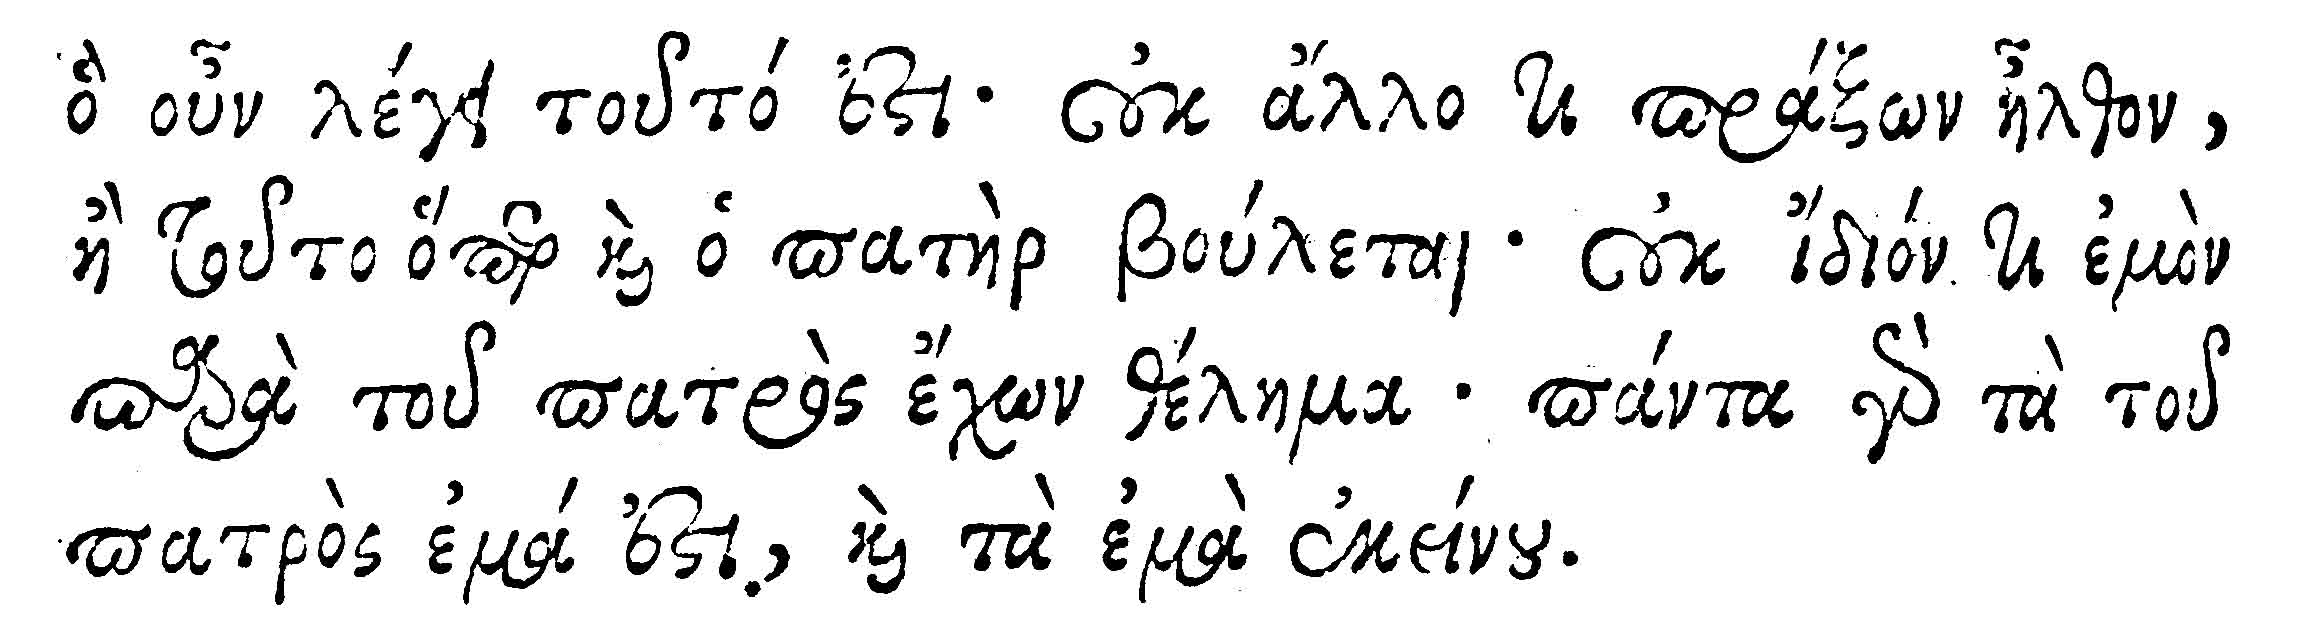 ὃ οὖν λέγει τοῦτό ἐστι· οὐκ ἄλλο τι πράξων ἦλθον,
ἢ τοῦτο ὅπερ καὶ ὁ πατὴρ βούλεται· οὐκ ἴδιόν τι ἐμὸν
παρὰ τοῦ πατρὸς ἔχων θέλημα· πάντα γὰρ τὰ τοῦ
πατρὸς ἐμά ἐστι, καὶ τὰ ἐμὰ ἐκείνου.